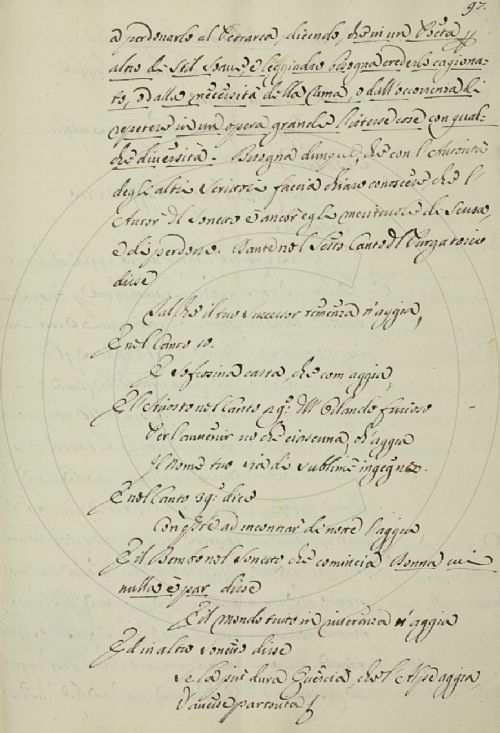 97.
a perdonarlo al Petrarca, dicendo, che in un Poeta
altro de stil soave, e leggiadro bisogna crederlo cagiona-
to, o dalla necessità della rima, o dall'occorrenza di
repetere in un opera grande l'istesse cose con qual-
che diversità. Bisogna dunque, che con l'autorità
degli altri Scrittori faccia chiaro conoscere che l'
Autor del sonetto è ancor egli meritevole di scusa,
e di perdono. Dante nel Sesto Canto del Purgatorio
disse
Tal che il tuo successor temenza n'aggia,
E nel Canto 10.
che com aggia,
E l'Ariosto nel Canto 29.° dell Orlando furioso
Per l'avvenir vo che ciascuna, ch'aggia
Il nome tuo, sia di sublime ingegno.
E nel Canto 39.° dice
ad incontrar di notte l'aggia,
E il Bembo nel sonetto che comincia Donna cui
nulla è par disse
E il mondo tutto in riverenza n'aggia
Ed in altro sonetto disse
Se la più dura Quercia, che l'Alpe aggia,
V'avesse partorita